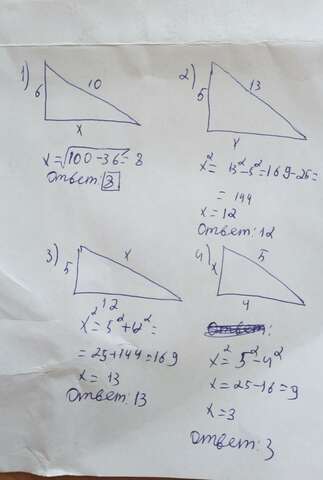 1)
6
10
x
x=√100-36=8
Ответ: 8
2)
5
13
x
x²=13²-5²=169-25=
=144
x=12
Ответ: 12
3)
5
x
12
x²=5²+12²=
=25+144=169
x=13
Ответ: 13
4)
x
5
4
x²=5²-4²
x=25-16=9
x=3
Ответ: 3